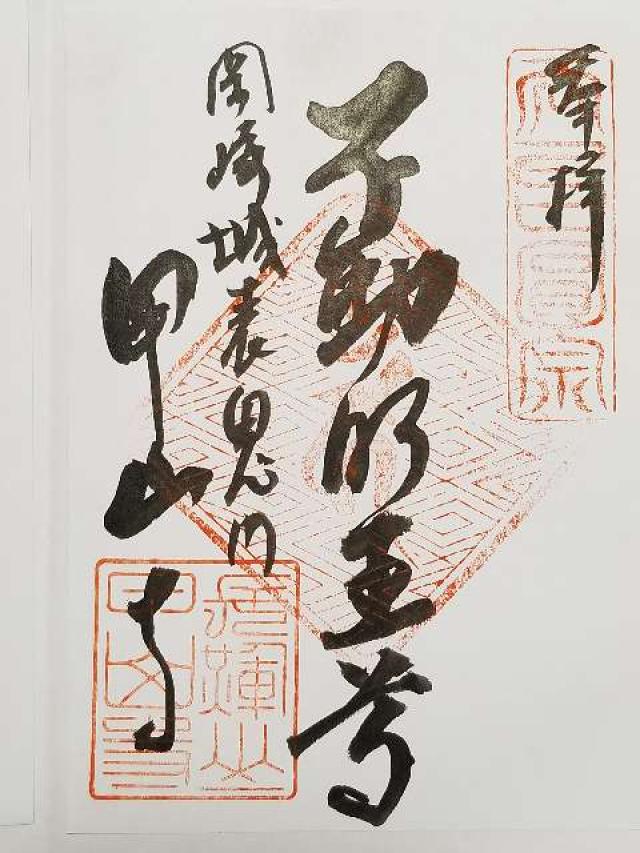 奉拝
不動明王尊
岡崎城表鬼門
甲山寺
甲山寺